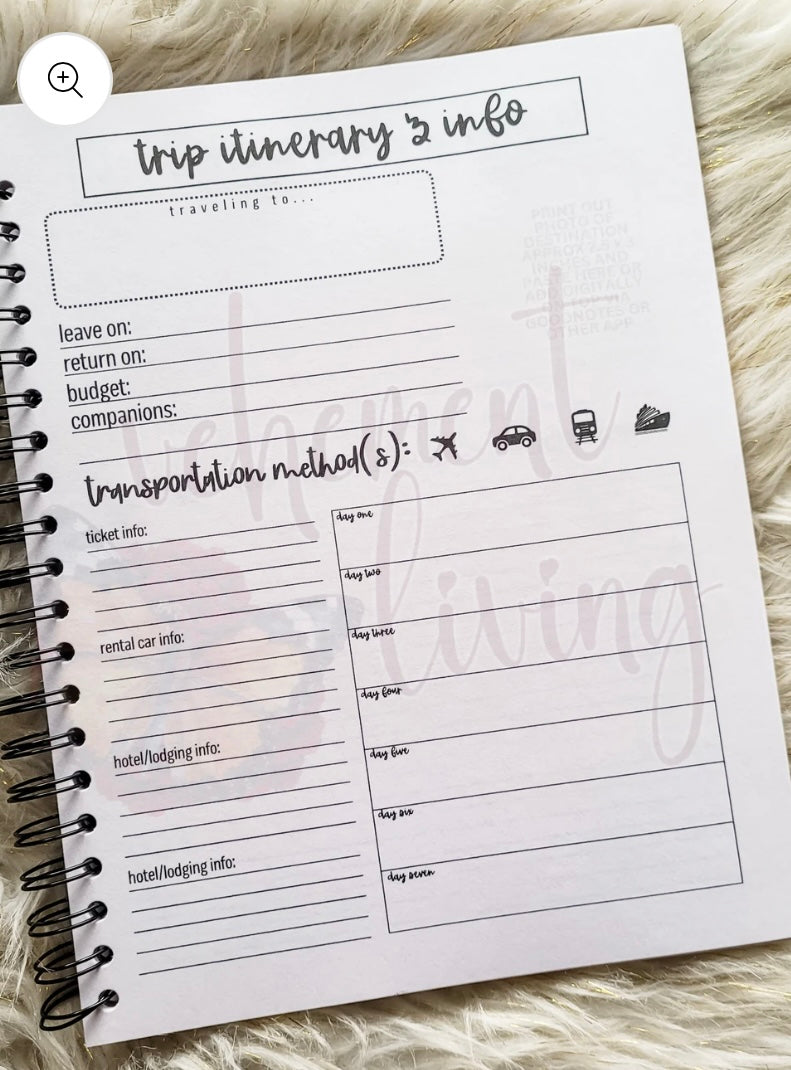 trip itinerary & info
traveling to...
PRINT OUT
PHOTO OF
DESTINATION
APPROX 2.5 X 3
INCHES AND
PASTE HERE OR
ADD DIGITALLY
ON TOP VIA
GOODNOTES OR
OTHER APP
leave on:
return on:
budget:
companions:
transportation method(s):
ticket info:
rental car info:
hotel/lodging info:
hotel/lodging info:
day one
day two
day three
day four
day five
day six
day seven
vehement
living